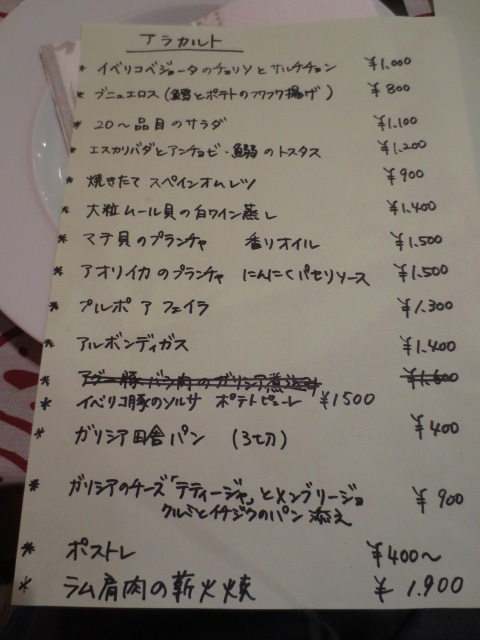 アラカルト
* イベリコベジョータのチョリソとサルチチョン ¥1,000
* ブニュエロス(鱈とポテトのフワフワ揚げ) ¥800
* 20〜品目のサラダ ¥1,100
* エスカリバダとアンチョビ・鰯のトスタス ¥1,200
* 焼きたて スペインオムレツ ¥900
* 大粒ムール貝の白ワイン蒸し ¥1,400
* マテ貝のプランチャ 香リオイル ¥1,500
* アオリイカのプランチャ にんにくパセリソース ¥1,500
* プルポ ア フェイラ ¥1,300
* アルボンディガス ¥1,400
* アグー豚バラ肉のガリシア煮込み ¥1,600
* イベリコ豚のソルサ ポテトピューレ ¥1500
* ガリシア田舎パン (3切) ¥400
* ガリシアのチーズ「テティージャ」とメンブリージョ ¥900
クルミとイチジクのパン 添え
* ポストレ ¥400〜
* ラム肩肉の薪火焼 ¥1,900